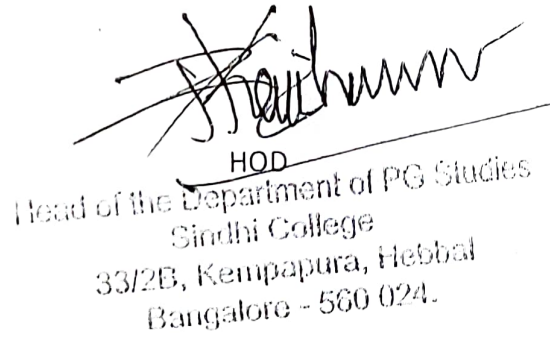 HOD
Head of the Department of PG Studies
Sindhi College
33/2B, Kempapura, Hebbal
Bangalore - 560 024.